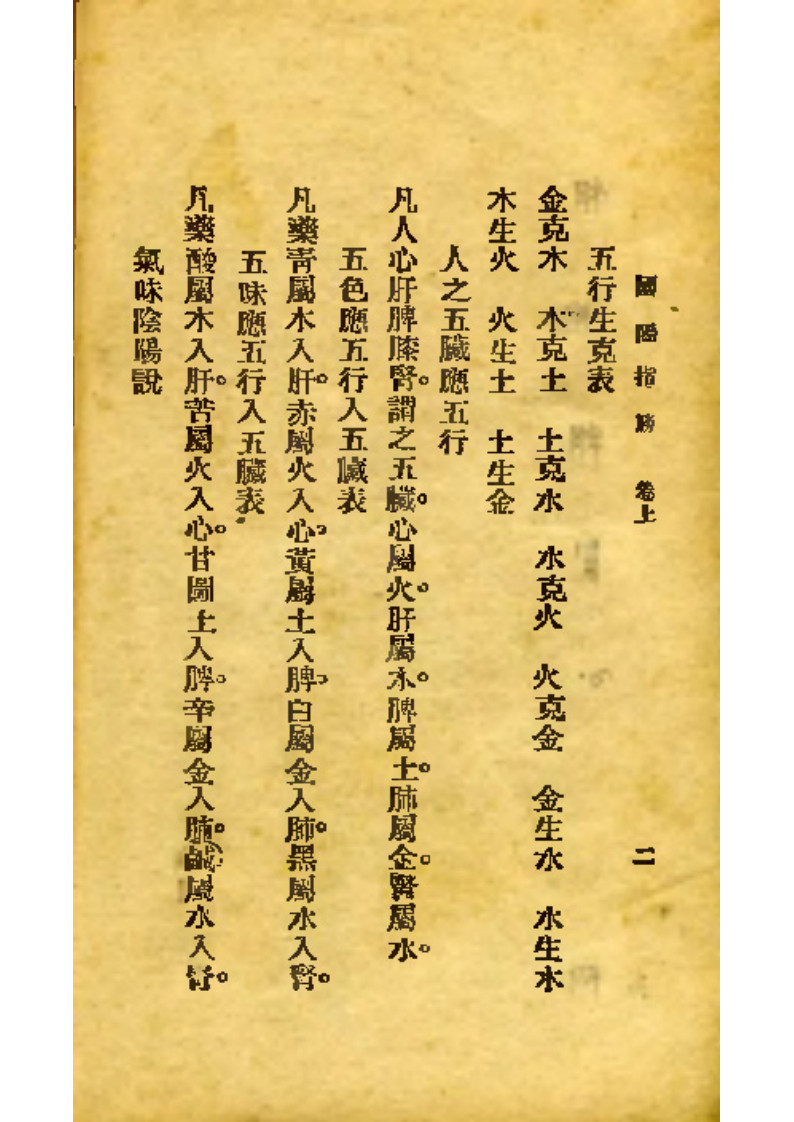 指 卷上 二
五行生克表
金克木 木克土 土克水 水克火 火克金 金生水 水生木
木生火 火生土 土生金
人之五臟應五行
凡人心肝脾膝腎。謂之五臟。心屬火。肝屬木。脾屬土。肺屬金。腎屬水。
五色應五行入五臟表
凡藥青屬木入肝。赤屬火入心。黃屬土入脾。白屬金入肺。黑屬水入腎。
五味應五行入五臟表
凡藥酸屬木入肝。苦屬火入心。甘屬土入脾。辛屬金入肺。鹹屬水入腎。
氣味陰陽說